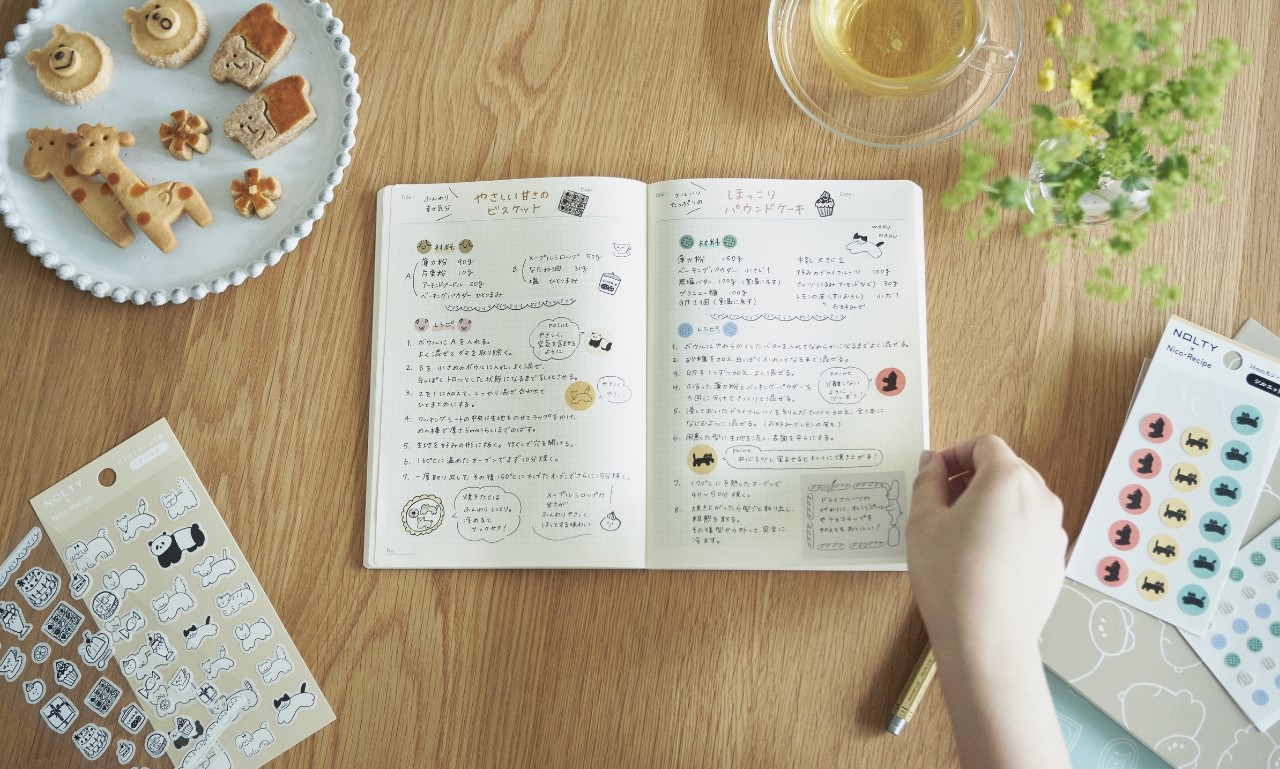 Title
ふんわり
幸せ気分
やさしい甘さの
ビスケット
Date
材料
A
薄力粉 90g
片栗粉 10g
アーモンドプードル 20g
ベーキングパウダー ひとつまみ
B
メープルシロップ 50g
なたね油 30g
塩 ひとつまみ
レシピ
point
やさしく、
1. ボウルにAを入れる。
よく混ぜてダマを取り除く。
2. Bを小さめのボウルに入れ、よく混ぜ、
白っぽくトロッとした状態になるまで乳化させる。
3. 2を1に加えて、しっかり混ぜ合わせて
ひとまとめにする。
やさしく
やさしく
4. クッキングシートの中央に生地をのせてラップをかけ、
めん棒で厚さ5mmくらいまでのばす。
5. 生地を好みの形に抜く。竹ぐしで穴を開ける。
6. 150℃に温めたオーブンでまず10分焼く。
7. 一度取り出して、その後150℃に下げたオーブンでさらに15分焼く。
焼きたては
ふんわりしっとり。
冷めると
サックサク!
メープルシロップの
甘さが
ふんわりやさしく
ほっとする味わい
No.
Title
たっぷりの
ほっこり
パウンドケーキ
Date
WAKU
WAKU
材料
薄力粉 150g
ベーキングパウダー 小さじ1
無塩バター 100g (常温に戻す)
グラニュー糖 100g
卵 2個 (常温に戻す)
牛乳 大さじ2
好みのドライフルーツ 100g
ナッツ (くるみ アーモンドなど) 30g
レモンの皮 (すりおろし) 小さじ1
お好みで
レシピ
1. ボウルにやわらかくしたバターを入れてなめらかになるまでよく混ぜる。
2. 砂糖を加え、白っぽくふわっとなるまで混ぜる。
3. 卵を1つずつ加え、よく混ぜる。
4. ふるった薄力粉とベーキングパウダーを
3回に分けてさっくりと混ぜる。
point
分離しない
ように
5. 浸しておいたドライフルーツと刻んだナッツを加え、全体に
なじむように混ぜる。(お好みでレモンの皮も)
6. 用意した型に生地を流し、表面を平らにする。
point
中心を少し窪ませるとキレイに焼き上がる!
7. 170℃に予熱したオーブンで
40〜50分焼く。
8. 焼き上がったら型ごと取り出し、
粗熱を取る。
その後型から外して完全に
冷ます。
ドライフルーツの
かわりに、オレンジピール
やチョコチップを
加えてもおいしい!
NOLTY
Nico-Recipe
NOLTY
×
Nico-Recipe